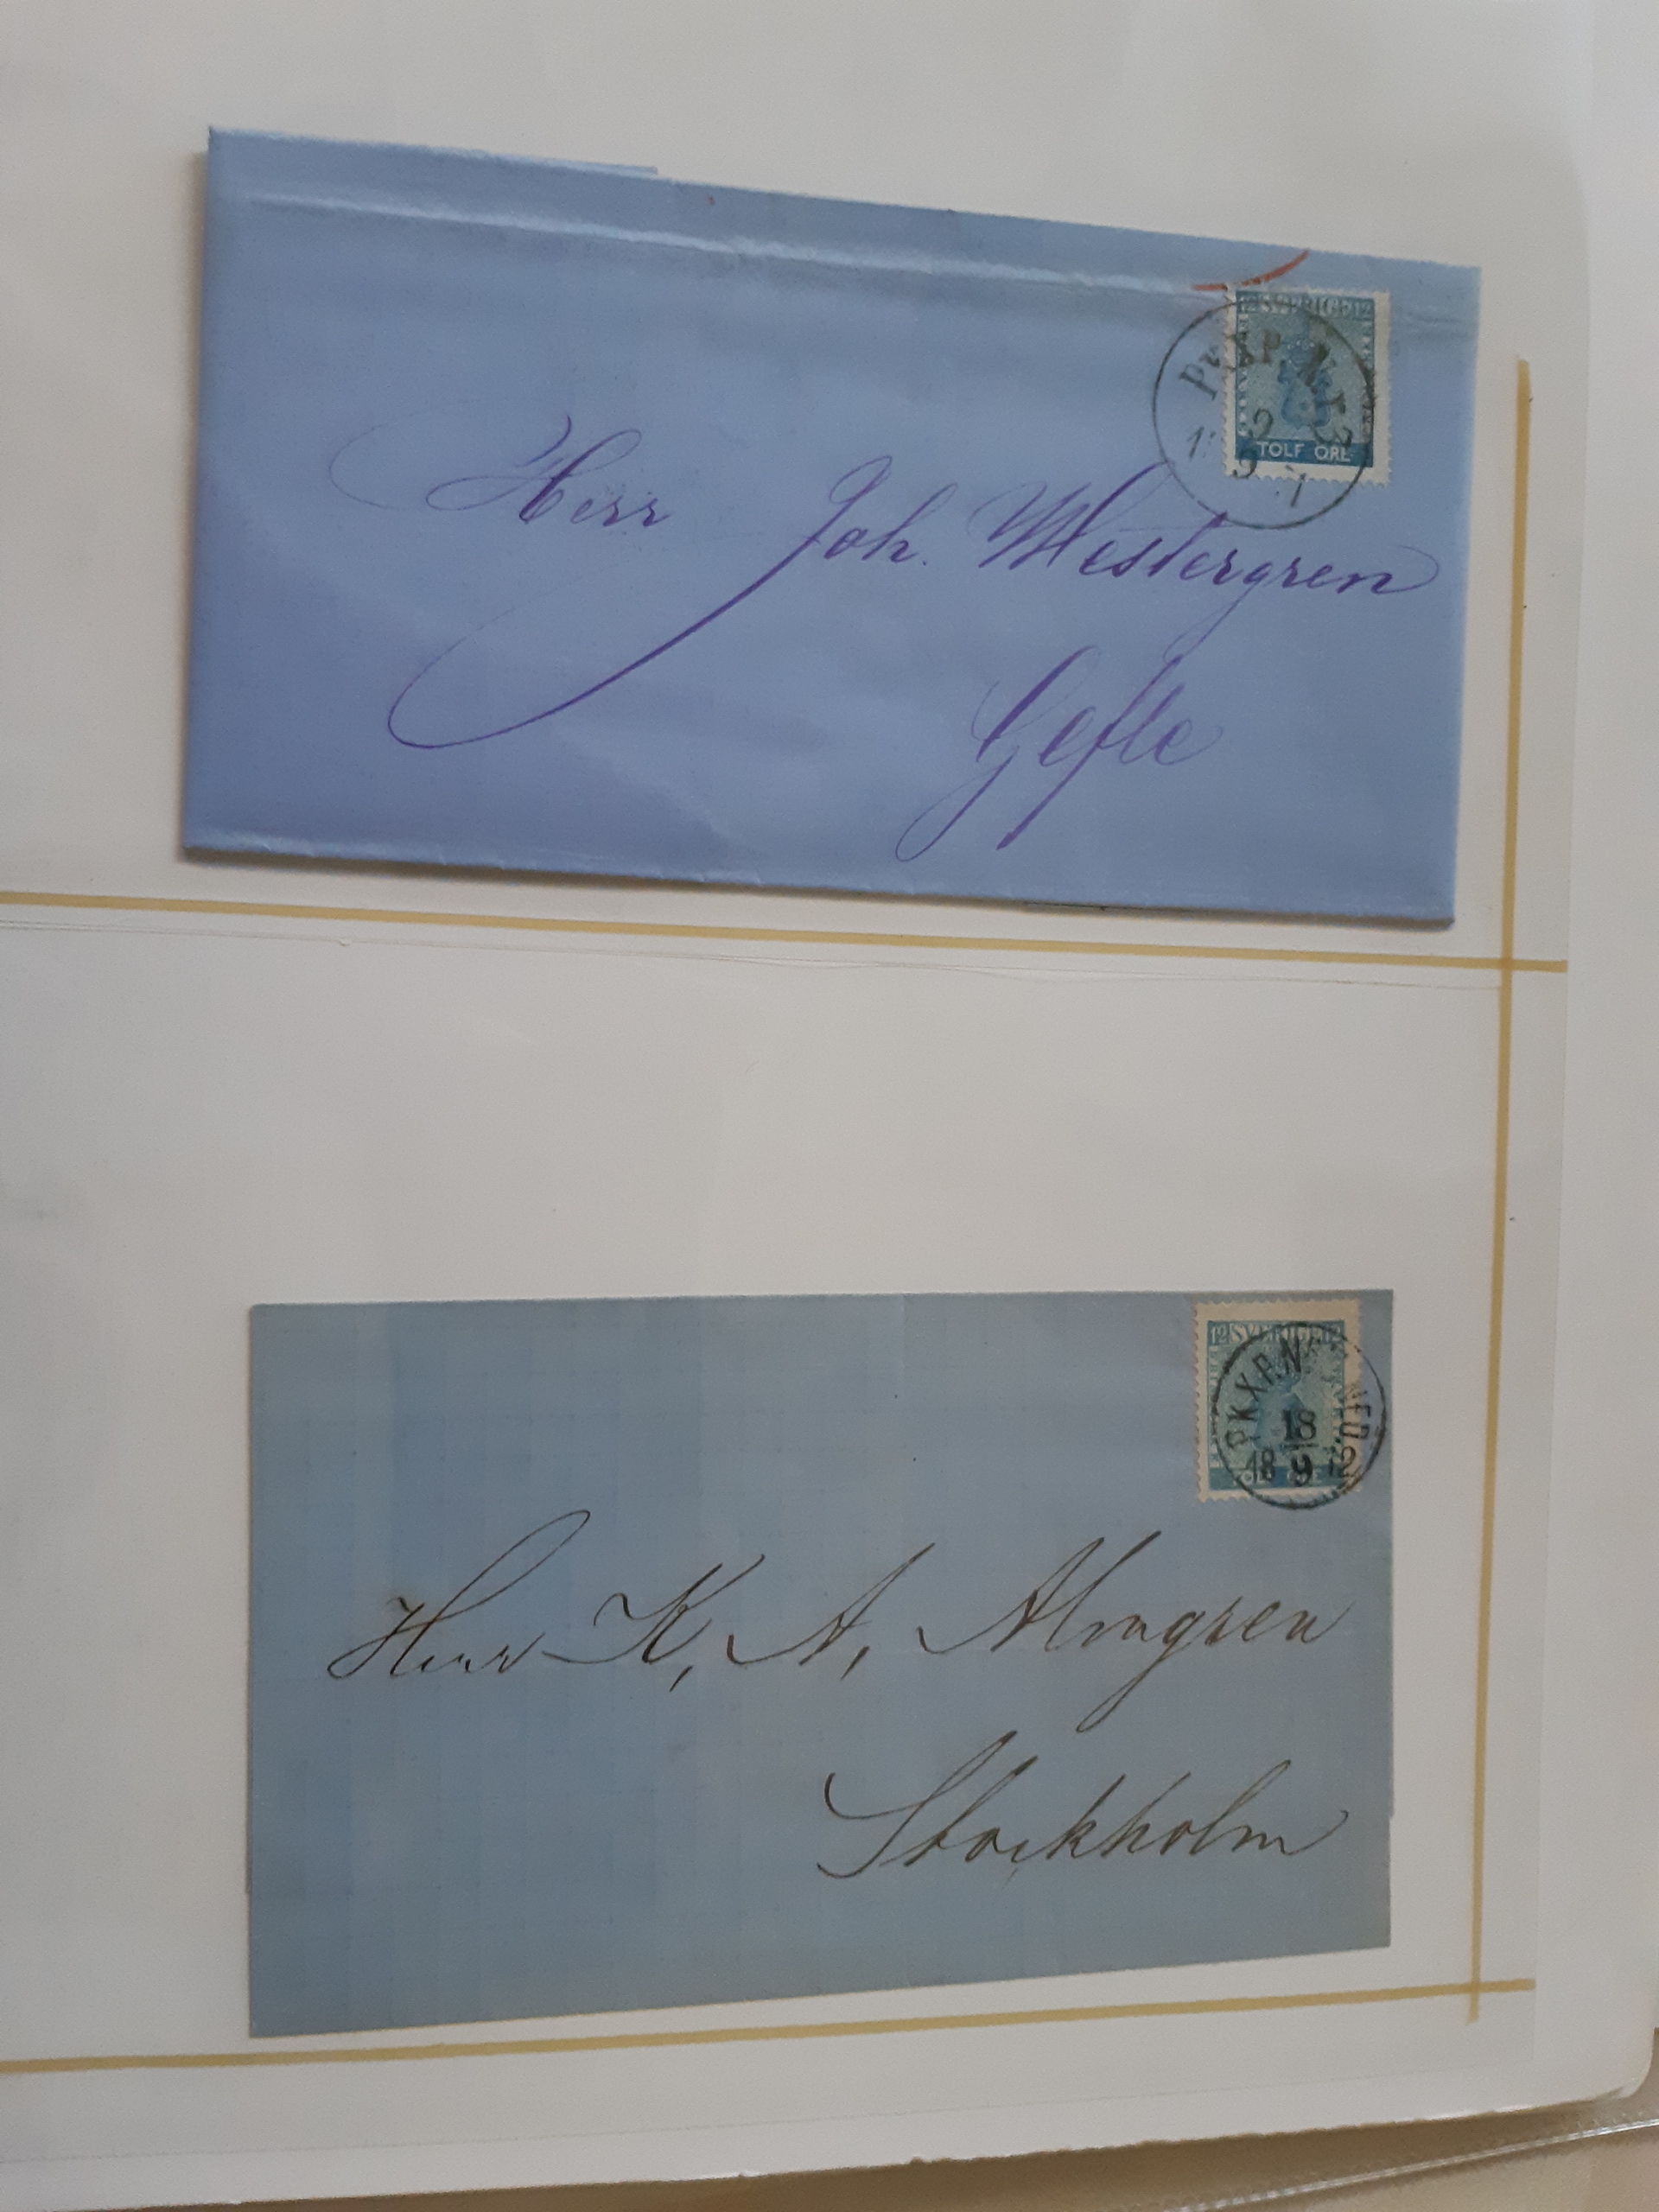 12 SVERIGE 12
PKXP. Nr 3
9
TOLF ÖRE
Herr Joh. Westergren
Gefle
12 SVERIGE 12
PKXP. Nr NED
18
18 9 72
Herr K, A, Almgren
Stockholm